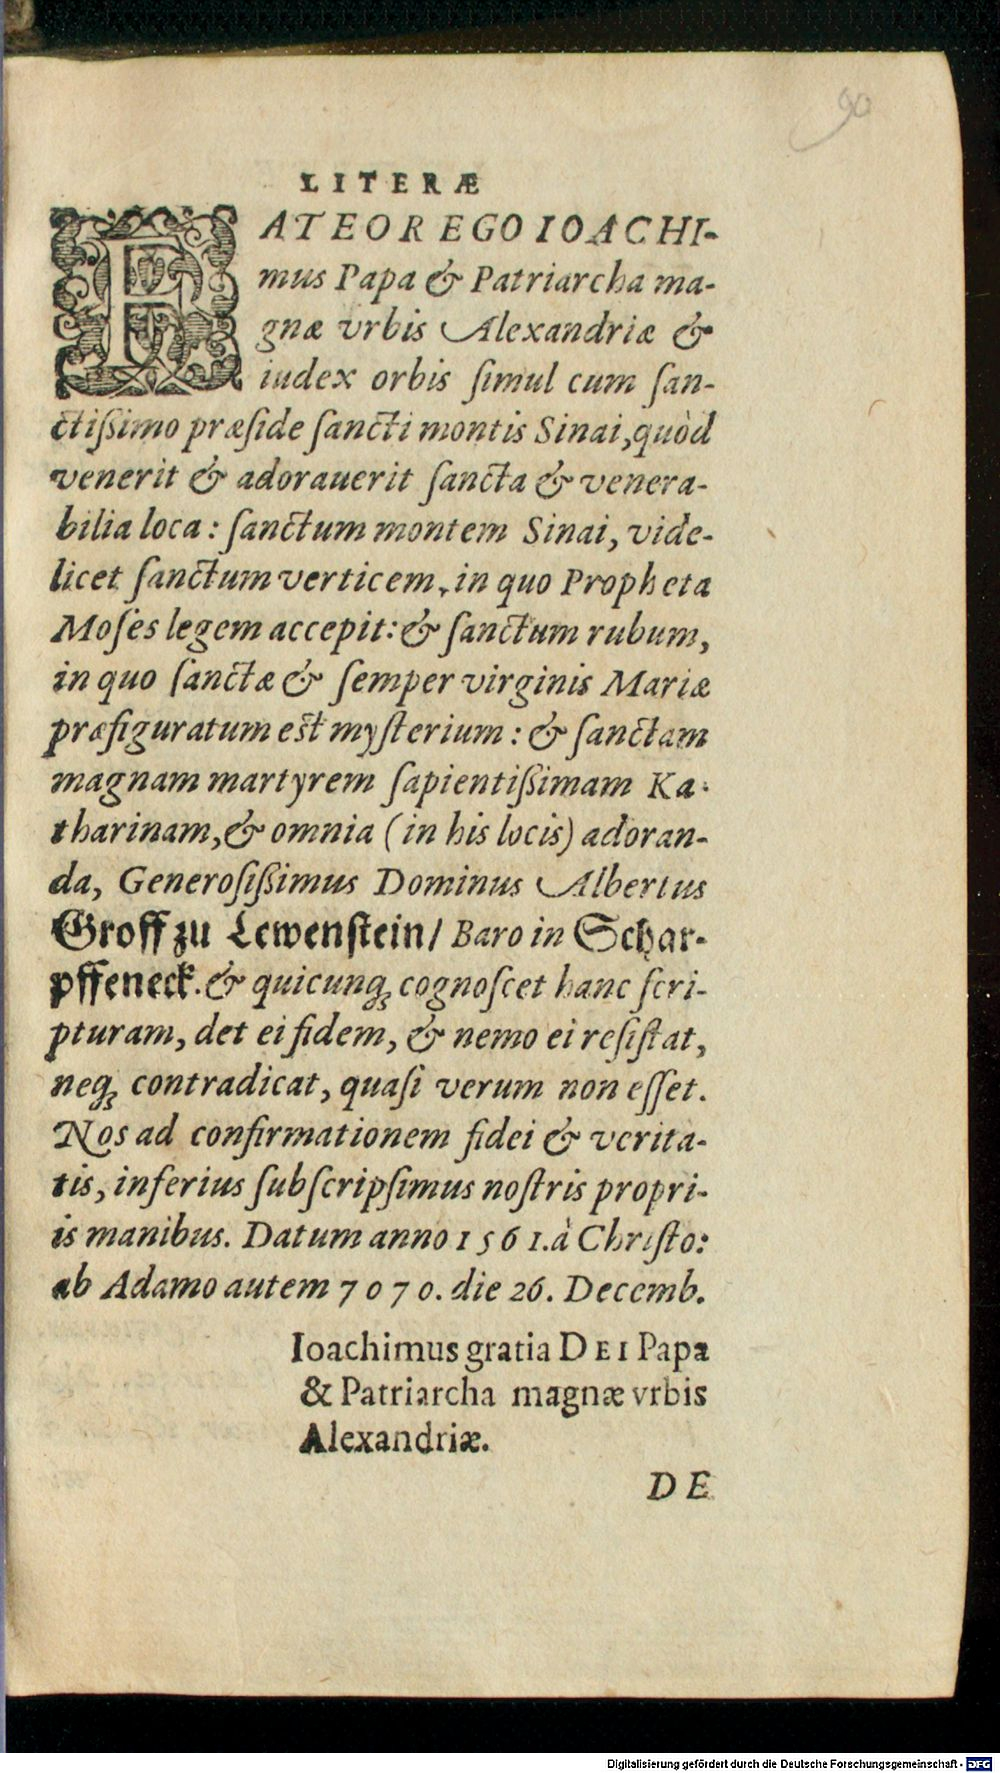 90
LITERÆ
FATEOR EGO IOACHI-
mus Papa & Patriarcha ma-
gnæ vrbis Alexandriæ &
iudex orbis ſimul cum ſan-
ctißimo præſide ſancti montis Sinai, quòd
venerit & adorauerit ſancta & venera-
bilia loca: ſanctum montem Sinai, vide-
licet ſanctum verticem, in quo Propheta
Moſes legem accepit: & ſanctum rubum,
in quo ſanctæ & ſemper virginis Mariæ
præfiguratum est myſterium: & ſanctam
magnam martyrem ſapientißimam Ka-
tharinam, & omnia (in his locis) adoran-
da, Generoſißimus Dominus Albertus
Groff zu Lewenſtein/ Baro in Schar-
pffeneck. & quicunqꝫ cognoſcet hanc ſcri-
pturam, det ei fidem, & nemo ei reſiſtat,
neqꝫ contradicat, quaſi verum non eſſet.
Nos ad confirmationem fidei & verita-
tis, inferius ſubſcripſimus noſtris propri-
is manibus. Datum anno 1561. à Chriſto:
ab Adamo autem 7070. die 26. Decemb.
Ioachimus gratia DEI Papa
& Patriarcha magnæ vrbis
Alexandriæ.
DE
Digitalisierung gefördert durch die Deutsche Forschungsgemeinschaft - DFG